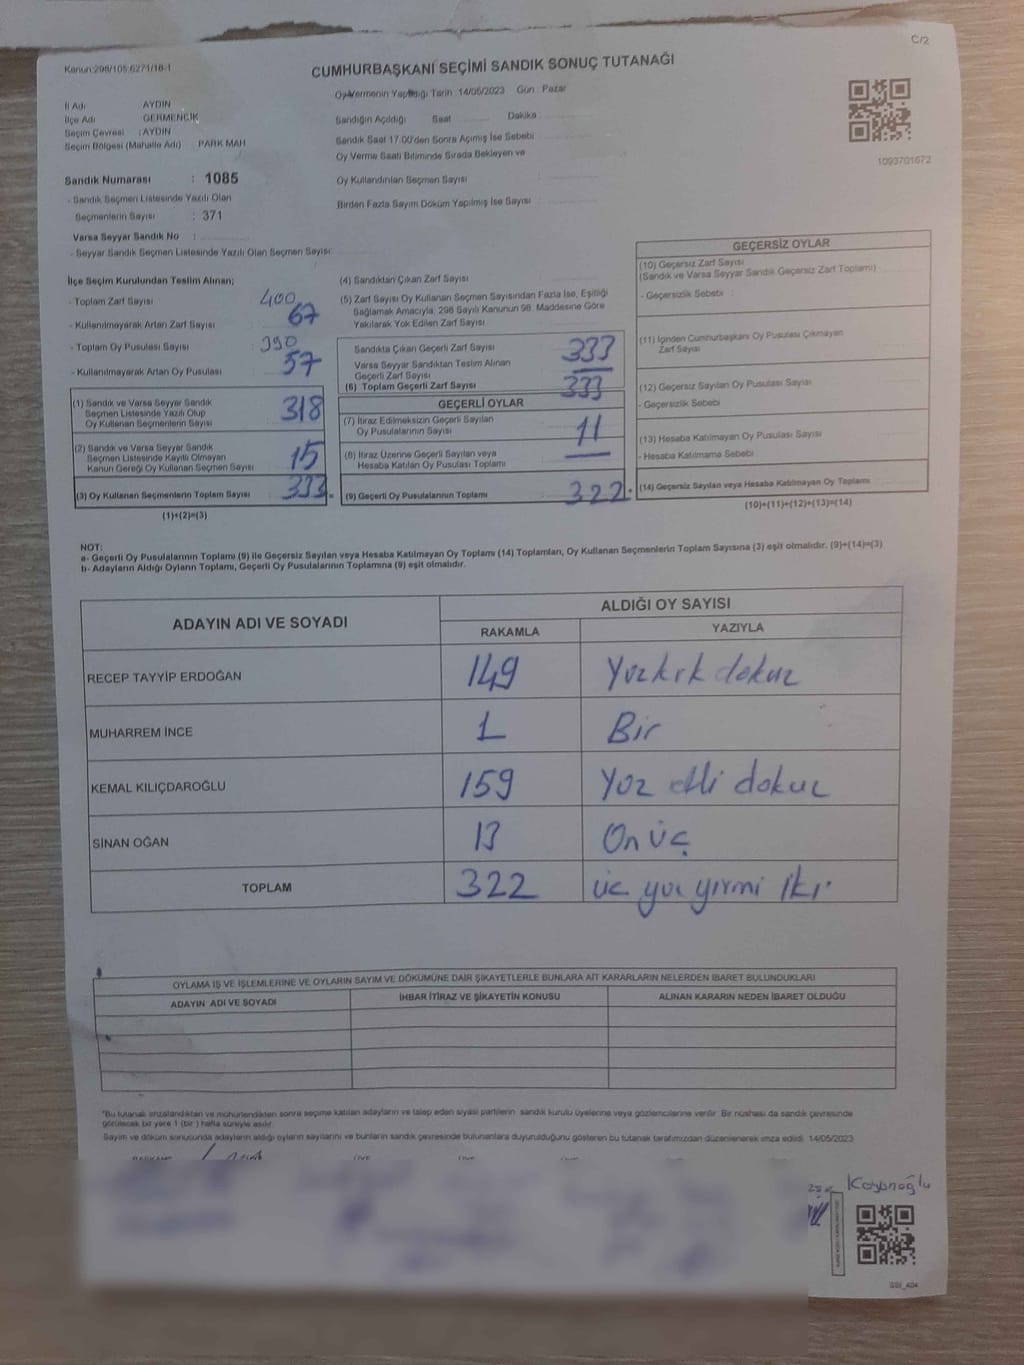 C/2
Kanun:298/105,6271/16-1
CUMHURBAŞKANI SEÇİMİ SANDIK SONUÇ TUTANAĞI
Oy Vermenin Yapıldığı Tarih : 14/05/2023 Gün : Pazar
İl Adı AYDIN
İlçe Adı GERMENCİK
Seçim Çevresi : AYDIN
Seçim Bölgesi (Mahalle Adı) PARK MAH
Sandığın Açıldığı Saat Dakika :
Sandık Saat 17:00'den Sonra Açımış İse Sebebi
Oy Verme Saati Bitiminde Sırada Bekleyen ve
Oy Kullandırılan Seçmen Sayısı
Birden Fazla Sayım Döküm Yapılmış İse Sayısı
1093701672
Sandık Numarası : 1085
- Sandık Seçmen Listesinde Yazılı Olan
Seçmenlerin Sayısı : 371
Varsa Seyyar Sandık No :
- Seyyar Sandık Seçmen Listesinde Yazılı Olan Seçmen Sayısı:
İlçe Seçim Kurulundan Teslim Alınan;
- Toplam Zarf Sayısı 400
- Kullanılmayarak Artan Zarf Sayısı 67
- Toplam Oy Pusulası Sayısı : 390
- Kullanılmayarak Artan Oy Pusulası 57
(1) Sandık ve Varsa Seyyar Sandık
Seçmen Listesinde Yazılı Olup
Oy Kullanan Seçmenlerin Sayısı 318
(2) Sandık ve Varsa Seyyar Sandık
Seçmen Listesinde Kayıtlı Olmayan
Kanun Gereği Oy Kullanan Seçmen Sayısı 15
(3) Oy Kullanan Seçmenlerin Toplam Sayısı 333
(1)+(2)=(3)
(4) Sandıktan Çıkan Zarf Sayısı
(5) Zarf Sayısı Oy Kullanan Seçmen Sayısından Fazla İse, Eşitliği
Sağlamak Amacıyla, 298 Sayılı Kanunun 98. Maddesine Göre
Yakılarak Yok Edilen Zarf Sayısı
Sandıkta Çıkan Geçerli Zarf Sayısı 333
Varsa Seyyar Sandıktan Teslim Alınan
Geçerli Zarf Sayısı
(6) Toplam Geçerli Zarf Sayısı 333
GEÇERLİ OYLAR
(7) İtiraz Edilmeksizin Geçerli Sayılan
Oy Pusulalarının Sayısı 11
(8) İtiraz Üzerine Geçerli Sayılan veya
Hesaba Katılan Oy Pusulası Toplamı
(9) Geçerli Oy Pusulalarının Toplamı 322
GEÇERSİZ OYLAR
(10) Geçersiz Zarf Sayısı
(Sandık ve Varsa Seyyar Sandık Geçersiz Zarf Toplamı)
- Geçersizlik Sebebi :
(11) İçinden Cumhurbaşkanı Oy Pusulası Çıkmayan
Zarf Sayısı
(12) Geçersiz Sayılan Oy Pusulası Sayısı
- Geçersizlik Sebebi
(13) Hesaba Katılmayan Oy Pusulası Sayısı
- Hesaba Katılmama Sebebi
(14) Geçersiz Sayılan veya Hesaba Katılmayan Oy Toplamı
(10)+(11)+(12)+(13)=(14)
NOT:
a- Geçerli Oy Pusulalarının Toplamı (9) ile Geçersiz Sayılan veya Hesaba Katılmayan Oy Toplamı (14) Toplamları, Oy Kullanan Seçmenlerin Toplam Sayısına (3) eşit olmalıdır. (9)+(14)=(3)
b- Adayların Aldığı Oyların Toplamı, Geçerli Oy Pusulalarının Toplamına (9) eşit olmalıdır.
ADAYIN ADI VE SOYADI ALDIĞI OY SAYISI
RAKAMLA YAZIYLA
RECEP TAYYİP ERDOĞAN 149 Yüzkırk dokuz
MUHARREM İNCE 1 Bir
KEMAL KILIÇDAROĞLU 159 Yüz elli dokuz
SİNAN OĞAN 13 On üç
TOPLAM 322 üç yüz yirmi iki
OYLAMA İŞ VE İŞLEMLERİNE VE OYLARIN SAYIM VE DÖKÜMÜNE DAİR ŞİKAYETLERLE BUNLARA AİT KARARLARIN NELERDEN İBARET BULUNDUKLARI
ADAYIN ADI VE SOYADI İHBAR İTİRAZ VE ŞİKAYETİN KONUSU ALINAN KARARIN NEDEN İBARET OLDUĞU
*Bu tutanak imzalandıktan ve mühürlendikten sonra seçime katılan adayların ve talep eden siyasi partilerin sandık kurulu üyelerine veya gözlemcilerine verilir. Bir nüshası da sandık çevresinde
görülecek bir yere 1 (bir) hafta süreyle asılır.
Sayım ve döküm sonucunda adayların aldığı oyların sayılarını ve bunların sandık çevresinde bulunanlara duyurulduğunu gösteren bu tutanak tarafımızdan düzenlenerek imza edildi. 14/05/2023